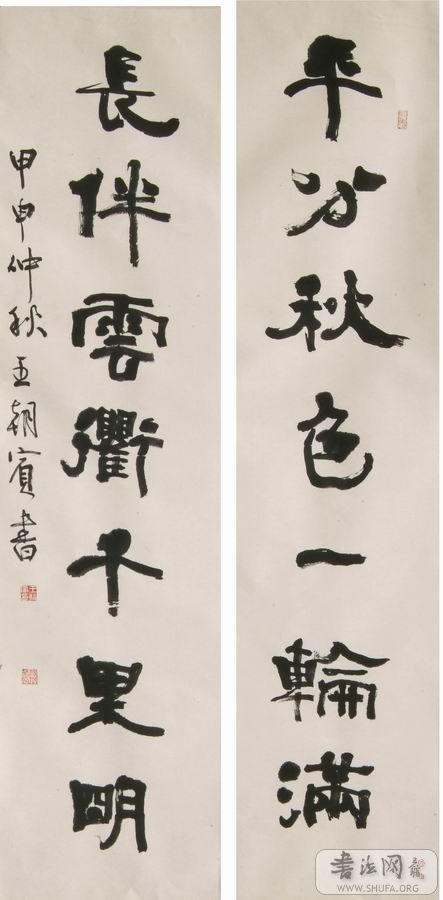 平分秋色一輪滿
長伴雲衢千里明
甲申仲秋王朝賓書
書法网
WWW.SHUFA.ORG